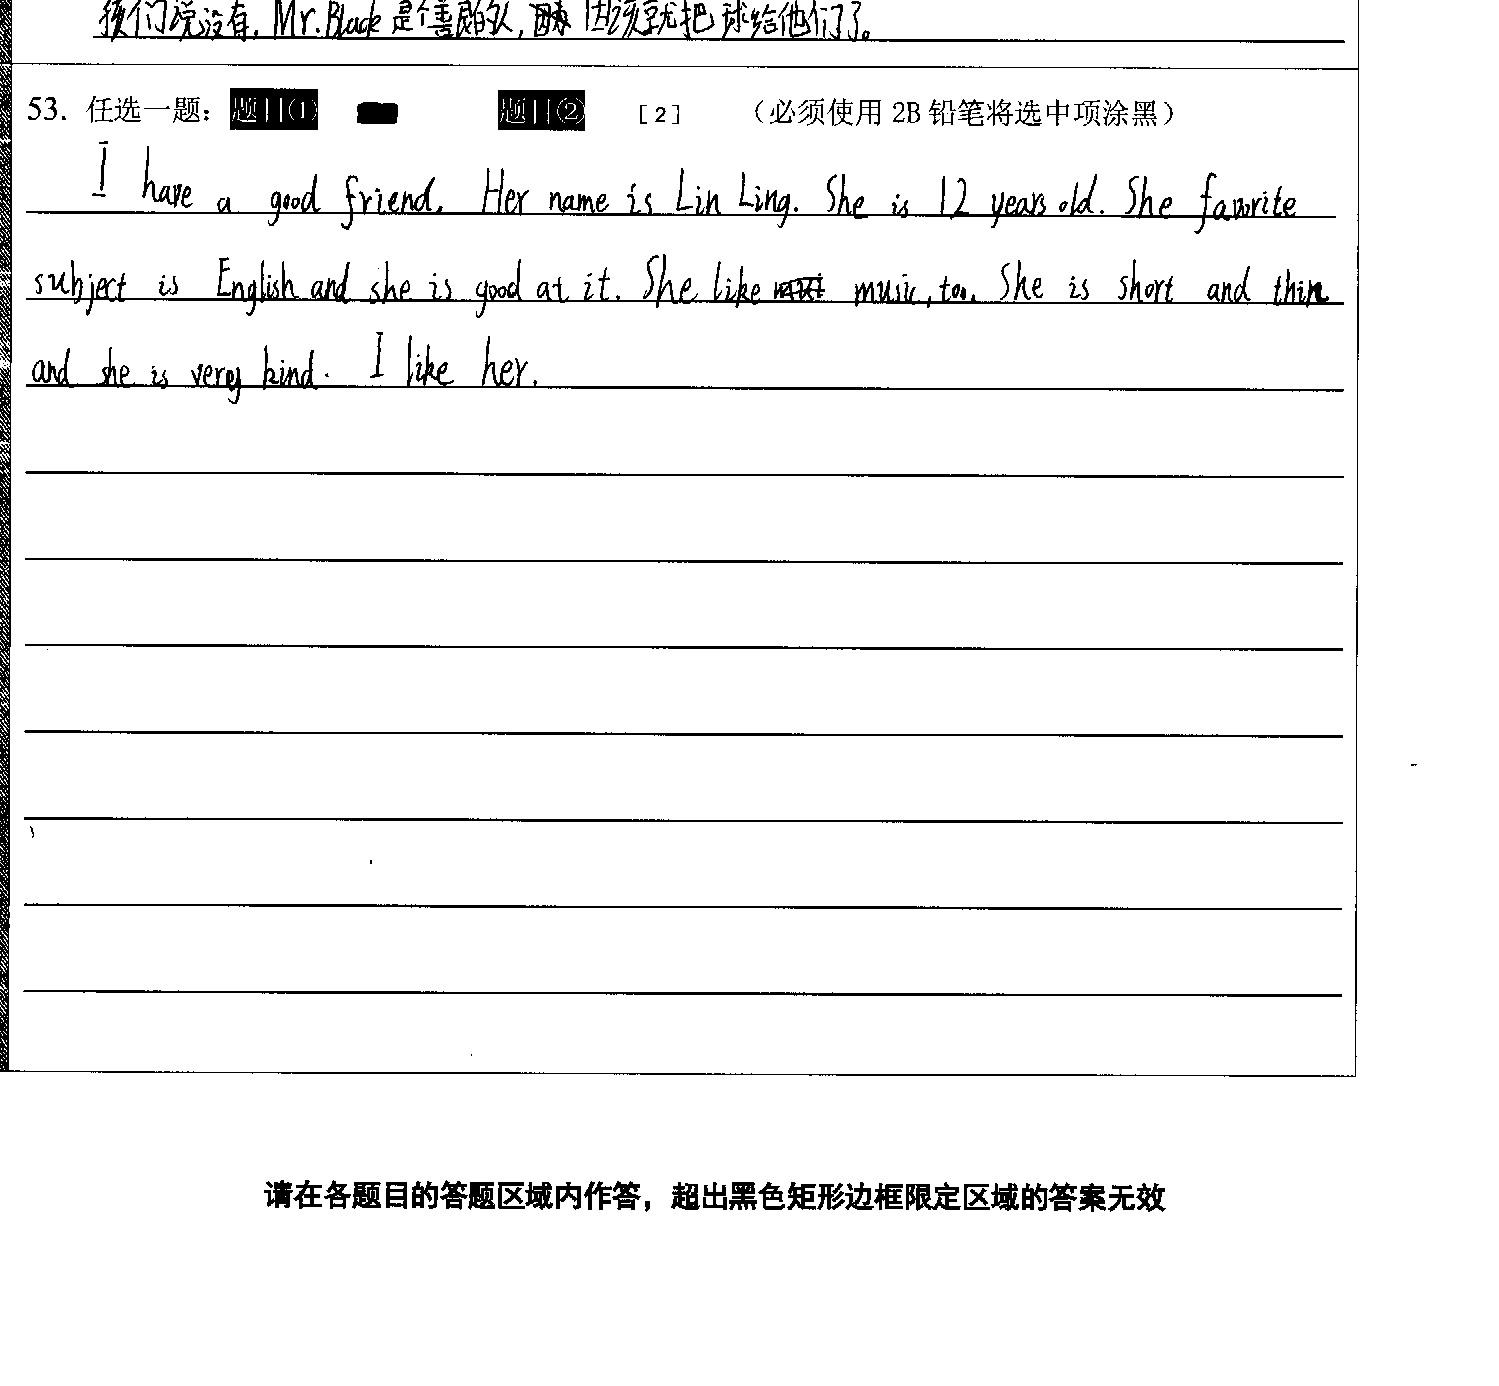 孩们说没有. Mr.Black 是个善良的人, 因该就把球给他们了。
53. 任选一题: 题目① 题目② [2] (必须使用 2B 铅笔将选中项涂黑)
I have a good friend. Her name is Lin Ling. She is 12 years old. She favorite
subject is English and she is good at it. She like music, too. She is short and thin
and she is very kind. I like her.
请在各题目的答题区域内作答，超出黑色矩形边框限定区域的答案无效